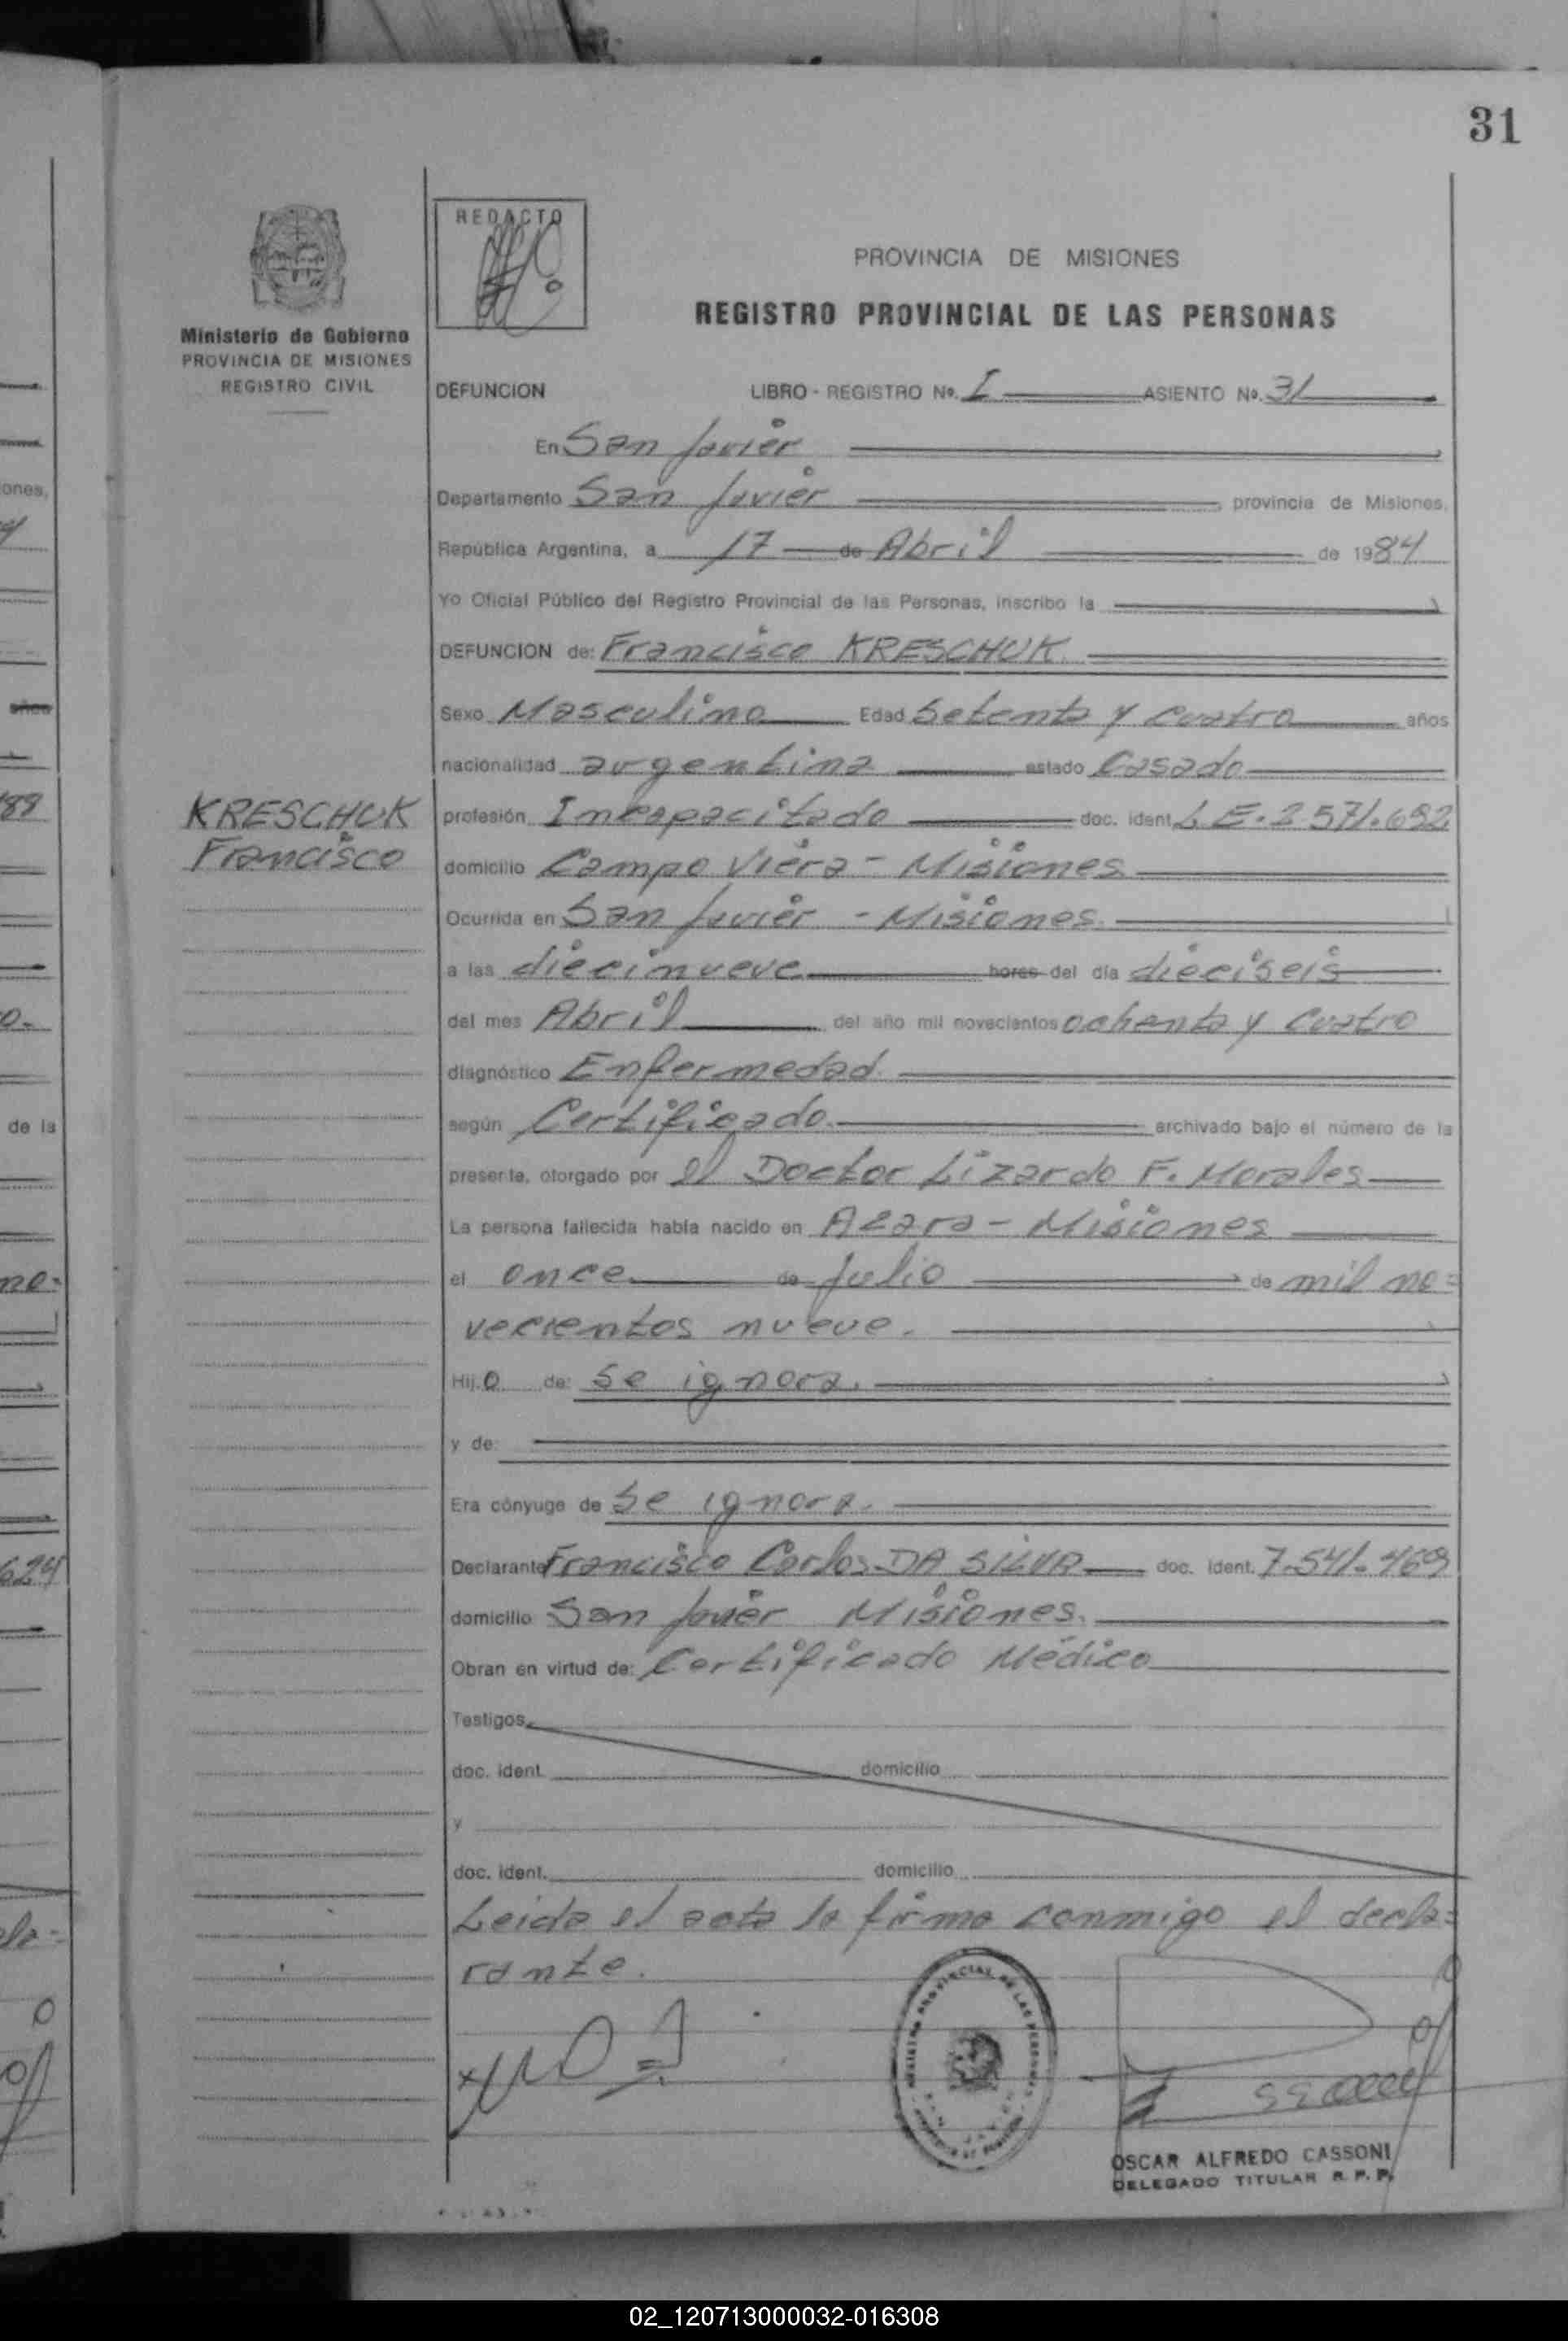 31
REDACTO
PROVINCIA DE MISIONES
REGISTRO PROVINCIAL DE LAS PERSONAS
Ministerio de Gobierno
PROVINCIA DE MISIONES
REGISTRO CIVIL
DEFUNCION LIBRO - REGISTRO Nº. I ASIENTO Nº. 31
En San Javier
Departamento San Javier provincia de Misiones,
República Argentina, a 17 de Abril de 1984
Yo Oficial Público del Registro Provincial de las Personas, inscribo la
DEFUNCION de: Francisco KRESCHUK
Sexo Masculino Edad Setenta y cuatro años
nacionalidad argentina estado Casado
KRESCHUK
Francisco
profesión Incapacitado doc. ident L.E. 2571.692
domicilio Campo Viera - Misiones
Ocurrida en San Javier - Misiones.
a las diecinueve horas del día dieciseis
del mes Abril del año mil novecientos ochenta y cuatro
diagnóstico Enfermedad.
según Certificado. archivado bajo el número de la
presente, otorgado por el Doctor Lizardo F. Morales
La persona fallecida había nacido en Azara - Misiones
el once de Julio de mil no=
vecientos nueve.
Hij o de: Se ignora.
y de:
Era cónyuge de Se ignora.
Declarante Francisco Carlos DA SILVA doc. ident. 7.541.469
domicilio San Javier Misiones.
Obran en virtud de: Certificado Médico
Testigos
doc. ident. domicilio
y
doc. ident. domicilio
Leida el acta la firma conmigo el decla=
rante.
OSCAR ALFREDO CASSONI
DELEGADO TITULAR R. P. P.
02_120713000032-016308